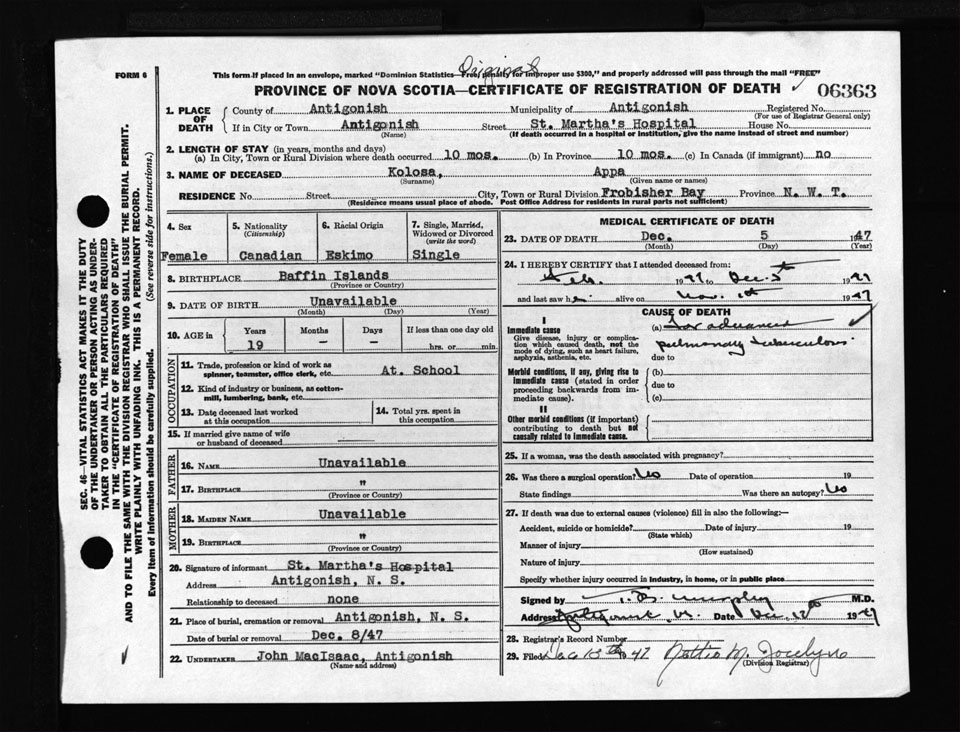 Original
FORM 6 This form if placed in an envelope, marked "Dominion Statistics—Free, penalty for improper use $300," and properly addressed will pass through the mail "FREE"
PROVINCE OF NOVA SCOTIA—CERTIFICATE OF REGISTRATION OF DEATH ✓ 06363
1. PLACE OF DEATH { County of Antigonish Municipality of Antigonish Registered No.
(For use of Registrar General only)
If in City or Town Antigonish Street St. Martha's Hospital House No.
(Name) (If death occurred in a hospital or institution, give the name instead of street and number)
2. LENGTH OF STAY (in years, months and days)
(a) In City, Town or Rural Division where death occurred 10 mos. (b) In Province 10 mos. (c) In Canada (if immigrant) no
3. NAME OF DECEASED Kolosa, Appa
(Surname) (Given name or names)
RESIDENCE No. Street City, Town or Rural Division Frobisher Bay Province N. W. T.
(Residence means usual place of abode. Post Office Address for residents in rural parts not sufficient)
4. Sex 5. Nationality 6. Racial Origin 7. Single, Married,
(Citizenship) Widowed or Divorced
(write the word)
Female Canadian Eskimo Single
8. BIRTHPLACE Baffin Islands
(Province or Country)
9. DATE OF BIRTH Unavailable
(Month) (Day) (Year)
10. AGE in { Years Months Days If less than one day old
19 – – hrs. or min.
OCCUPATION
11. Trade, profession or kind of work as
spinner, teamster, office clerk, etc. At. School
12. Kind of industry or business, as cotton-
mill, lumbering, bank, etc.
13. Date deceased last worked 14. Total yrs. spent in
at this occupation this occupation
15. If married give name of wife
or husband of deceased
FATHER
16. NAME Unavailable
17. BIRTHPLACE "
(Province or Country)
MOTHER
18. MAIDEN NAME Unavailable
19. BIRTHPLACE "
(Province or Country)
20. Signature of informant St. Martha's Hospital
Address Antigonish, N. S.
Relationship to deceased none
21. Place of burial, cremation or removal Antigonish, N. S.
Date of burial or removal Dec. 8/47
22. UNDERTAKER John MacIsaac, Antigonish
(Name and address)
MEDICAL CERTIFICATE OF DEATH
23. DATE OF DEATH Dec. 5 1947
(Month) (Day) (Year)
24. I HEREBY CERTIFY that I attended deceased from:
Feb. 1947 to Dec. 5th 1947
and last saw h alive on Nov. 1st 1947
CAUSE OF DEATH
I
Immediate cause (a) Far advanced ✓
Give disease, injury or complica- pulmonary tuberculosis
tion which caused death, not the
mode of dying, such as heart failure,
asphyxia, asthenia, etc. due to
Morbid conditions, if any, giving rise to (b)
immediate cause (stated in order due to
proceeding backwards from im-
mediate cause). (c)
II
Other morbid conditions (if important)
contributing to death but not
causally related to immediate cause.
25. If a woman, was the death associated with pregnancy?
26. Was there a surgical operation? No Date of operation 19
State findings Was there an autopsy? No
27. If death was due to external causes (violence) fill in also the following:—
Accident, suicide or homicide? Date of injury 19
(State which)
Manner of injury
(How sustained)
Nature of injury
Specify whether injury occurred in industry, in home, or in public place
Signed by Murphy M.D.
Address Antigonish Date Dec. 12th 1947
28. Registrar's Record Number
29. Filed Dec 13th 1947 Nettie M. Jocelyn
(Division Registrar)
SEC. 46—VITAL STATISTICS ACT MAKES IT THE DUTY
OF THE UNDERTAKER OR PERSON ACTING AS UNDER-
TAKER TO OBTAIN ALL THE PARTICULARS REQUIRED
IN THE "CERTIFICATE OF REGISTRATION OF DEATH"
AND TO FILE THE SAME WITH THE DIVISION REGISTRAR WHO SHALL ISSUE THE BURIAL PERMIT.
WRITE PLAINLY WITH UNFADING INK. THIS IS A PERMANENT RECORD.
Every item of information should be carefully supplied. (See reverse side for instructions.)
✓